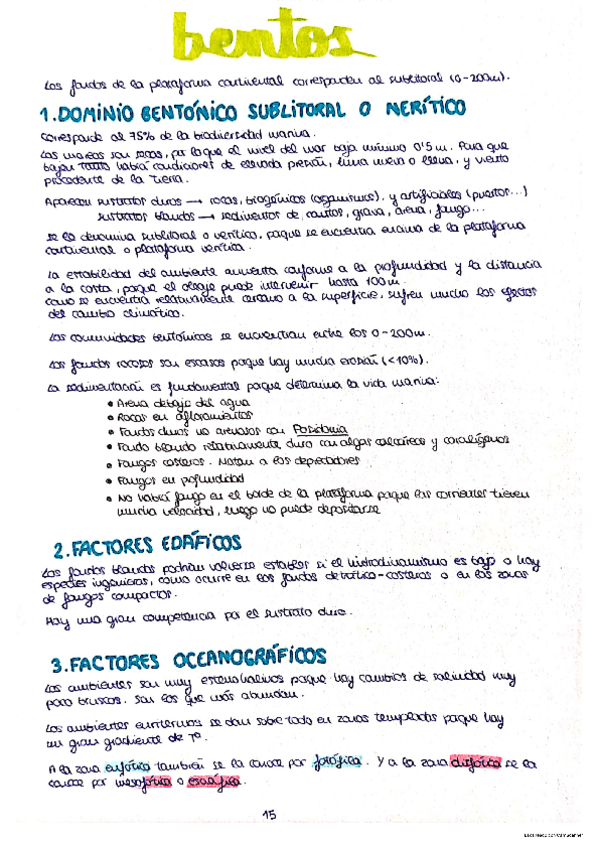 bentos
Los fondos de la plataforma continental corresponden al sublitoral (0-200m).
1. DOMINIO BENTÓNICO SUBLITORAL O NERÍTICO
Corresponde al 75% de la biodiversidad marina.
Las mareas son , por lo que el nivel del mar baja mínimo 0'5m. Para que
bajen tanto habrá condiciones de elevada presión, luna nueva o llena, y viento
procedente de la tierra.
Aparecen sustratos duros → rocas, biogénicos (organismos), y artificiales (puertos...)
sustratos blandos → sedimentos de cantos, grava, arena, fango...
Se le denomina sublitoral o nerítico, porque se encuentra encima de la plataforma
continental o plataforma nerítica.
La estabilidad del ambiente aumenta conforme a la profundidad y la distancia
a la costa, porque el oleaje puede intervenir hasta 100m.
Como se encuentra relativamente cercano a la superficie, sufren mucho los efectos
del cambio climático.
Las comunidades bentónicas se encuentran entre los 0-200m.
Los fondos rocosos son escasos porque hay mucha erosión (<10%).
La sedimentación es fundamental porque determina la vida marina:
• Arena debajo del agua
• Rocas en afloramientos
• Fondos duros no arenosos con Posidonia
• Fondo blando relativamente duro con algas calcáreas y coralígenos
• Fangos costeros. Notan a los depredadores
• Fangos en profundidad
• No habrá fango en el borde de la plataforma porque las corrientes tienen
mucha velocidad, luego no puede depositarse
2. FACTORES EDÁFICOS
Los fondos blandos podrían volverse estables si el hidrodinamismo es bajo o hay
especies ingenieras, como ocurre en los fondos detrítico-costeros o en las zonas
de fangos compactos.
Hay una gran competencia por el sustrato duro.
3. FACTORES OCEANOGRÁFICOS
Los ambientes son muy estenohalinos porque hay cambios de salinidad muy
poco bruscos. Son los que más abundan.
Los ambientes euritermos se dan sobre todo en zonas templadas porque hay
un gran gradiente de Tº.
A la zona eufótica también se la conoce por fotófila. Y a la zona disfótica se la
conoce por mesofótica o esciáfila.
15